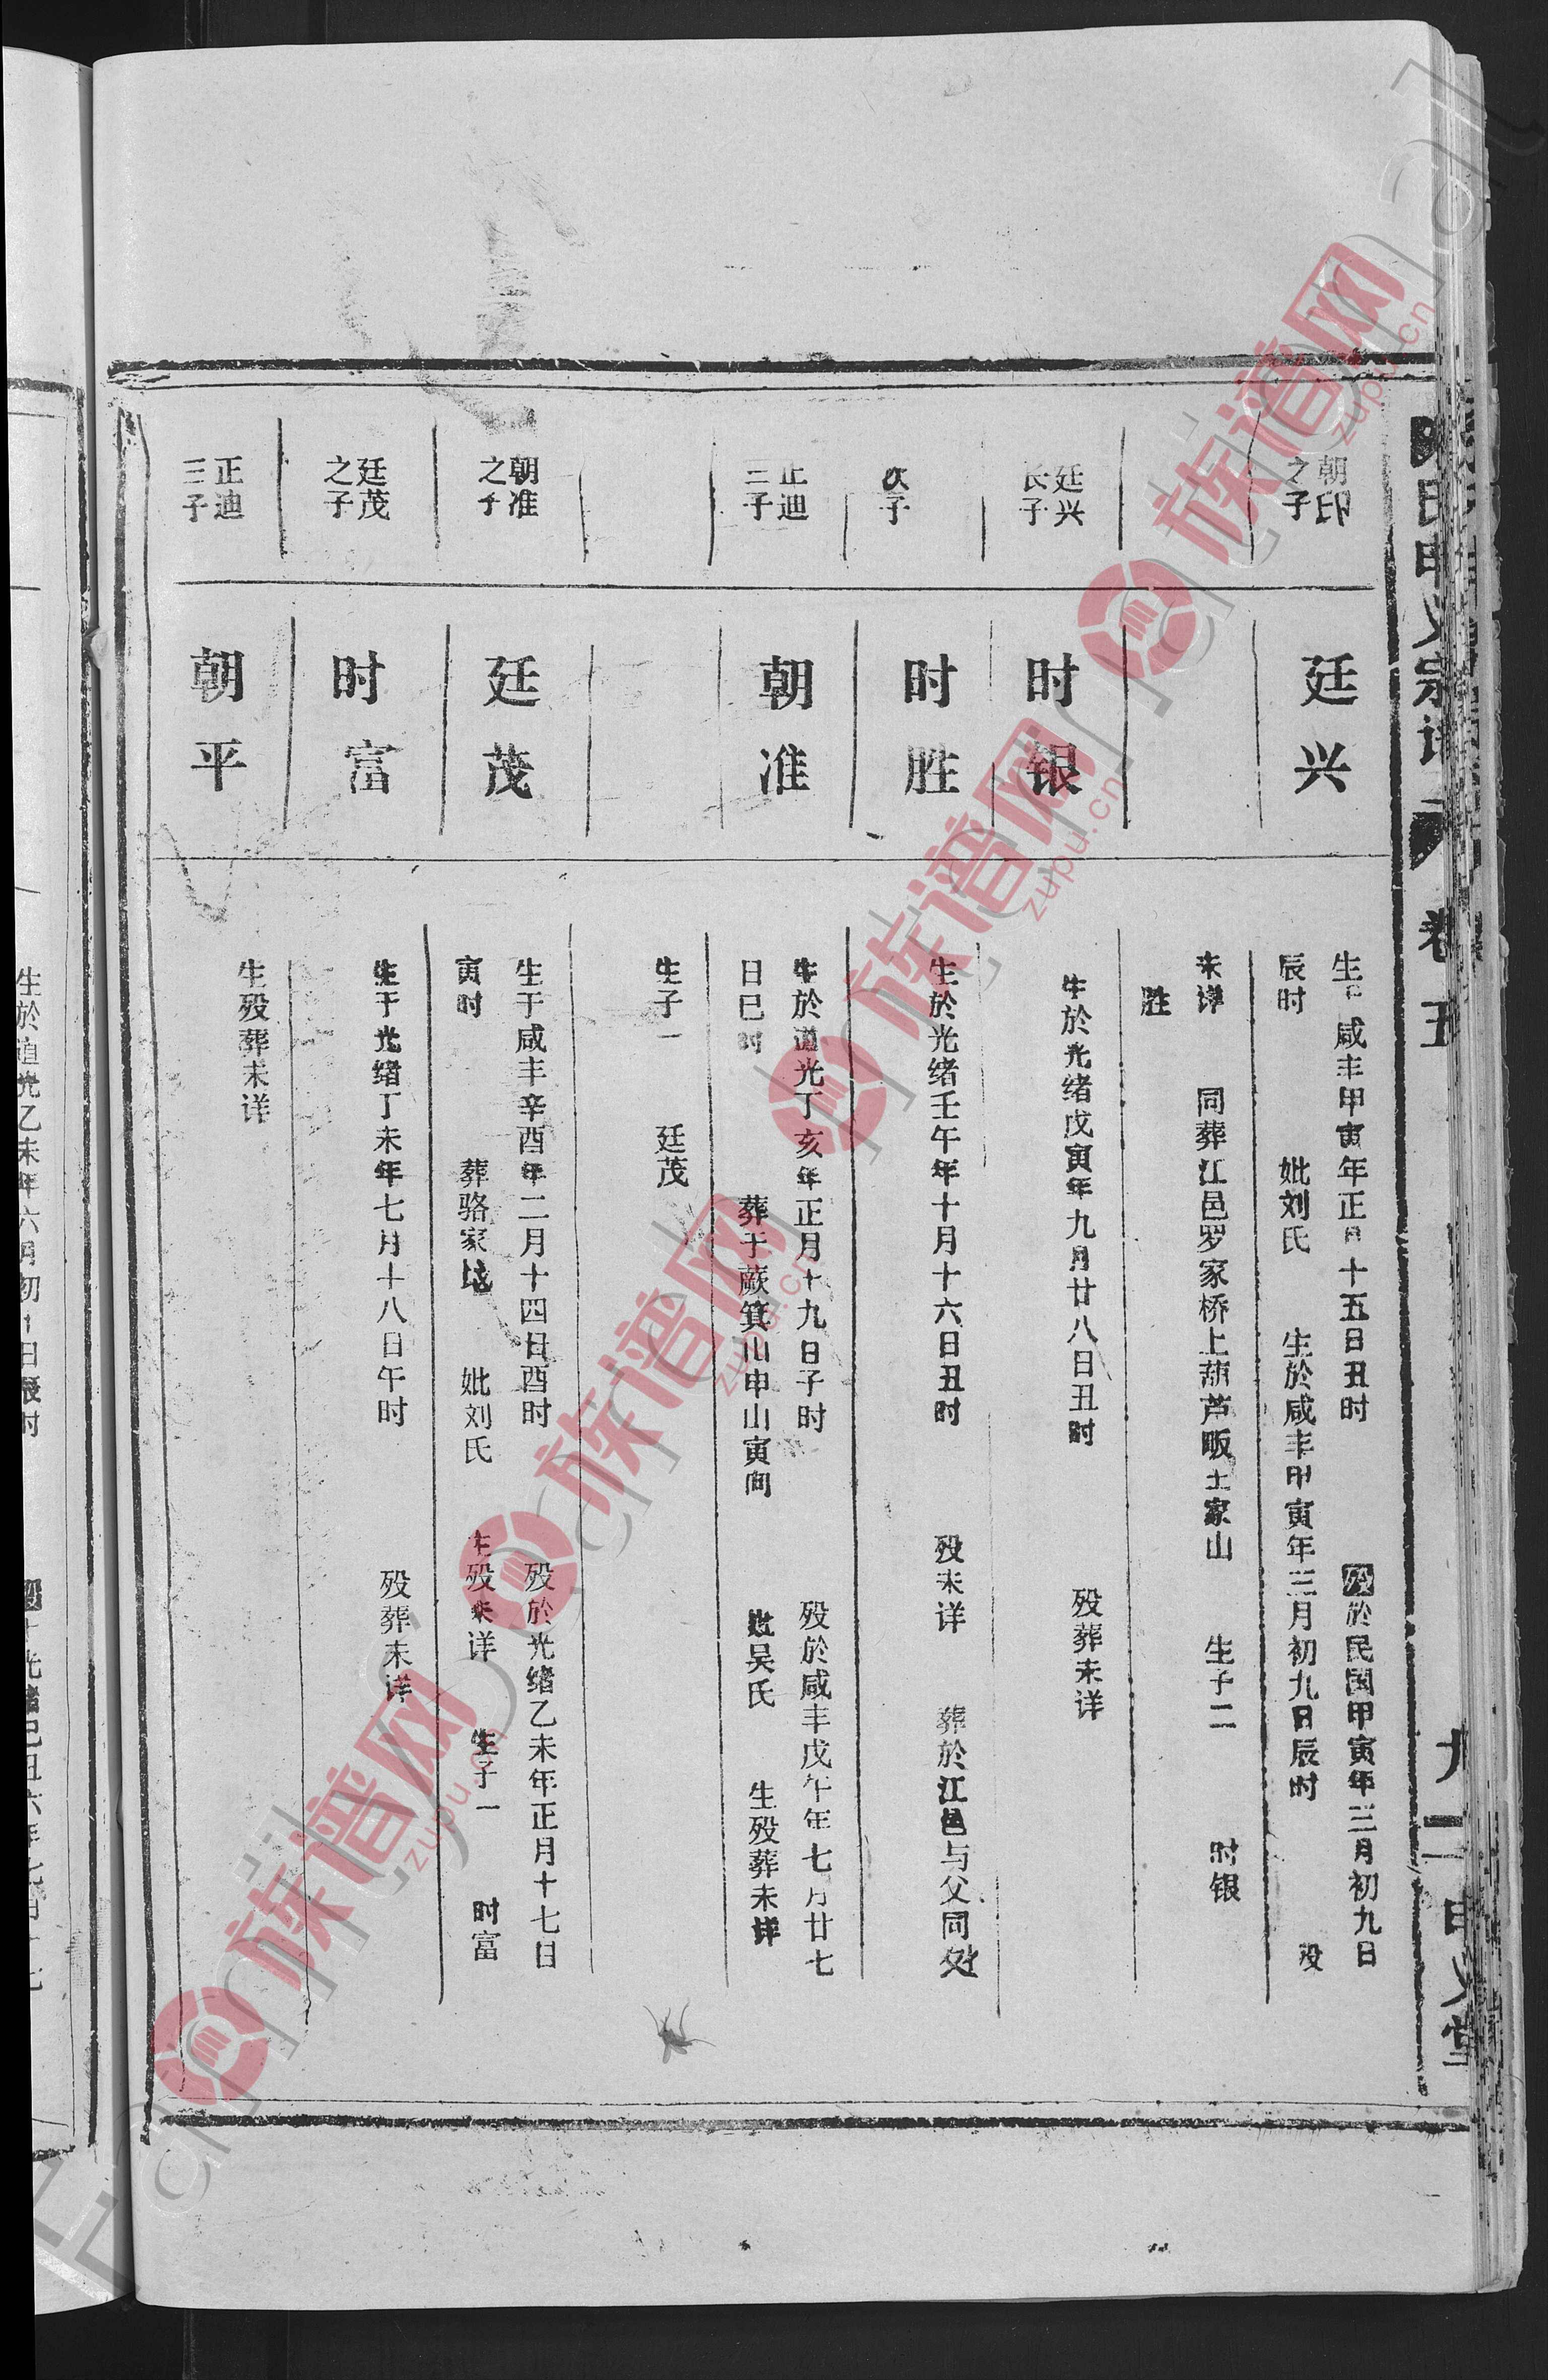 卷五
朝印
之子
廷兴
生于咸丰甲寅年正月十五日丑时 殁於民国甲寅年三月初九日
辰时 妣刘氏 生於咸丰甲寅年三月初九日辰时 殁
未详 同葬江邑罗家桥上葫芦畈土家山 生子二 时银
胜
廷兴
长子
时银
生於光绪戊寅年九月廿八日丑时 殁葬未详
次子
时胜
生於光绪壬午年十月十六日丑时 殁未详 葬於江邑与父同处
正迪
三子
朝准
生於道光丁亥年正月十九日子时 殁於咸丰戊午年七月廿七
日巳时 葬于蕨箕山申山寅向 妣吴氏 生殁葬未详
生子一 廷茂
朝准
之子
廷茂
生于咸丰辛酉年二月十四日酉时 殁於光绪乙未年正月十七日
寅时 葬骆家 妣刘氏 生殁未详 生子一 时富
廷茂
之子
时富
生于光绪丁未年七月十八日午时 殁葬未详
正迪
三子
朝平
生殁葬未详
族谱网
zupu.cn